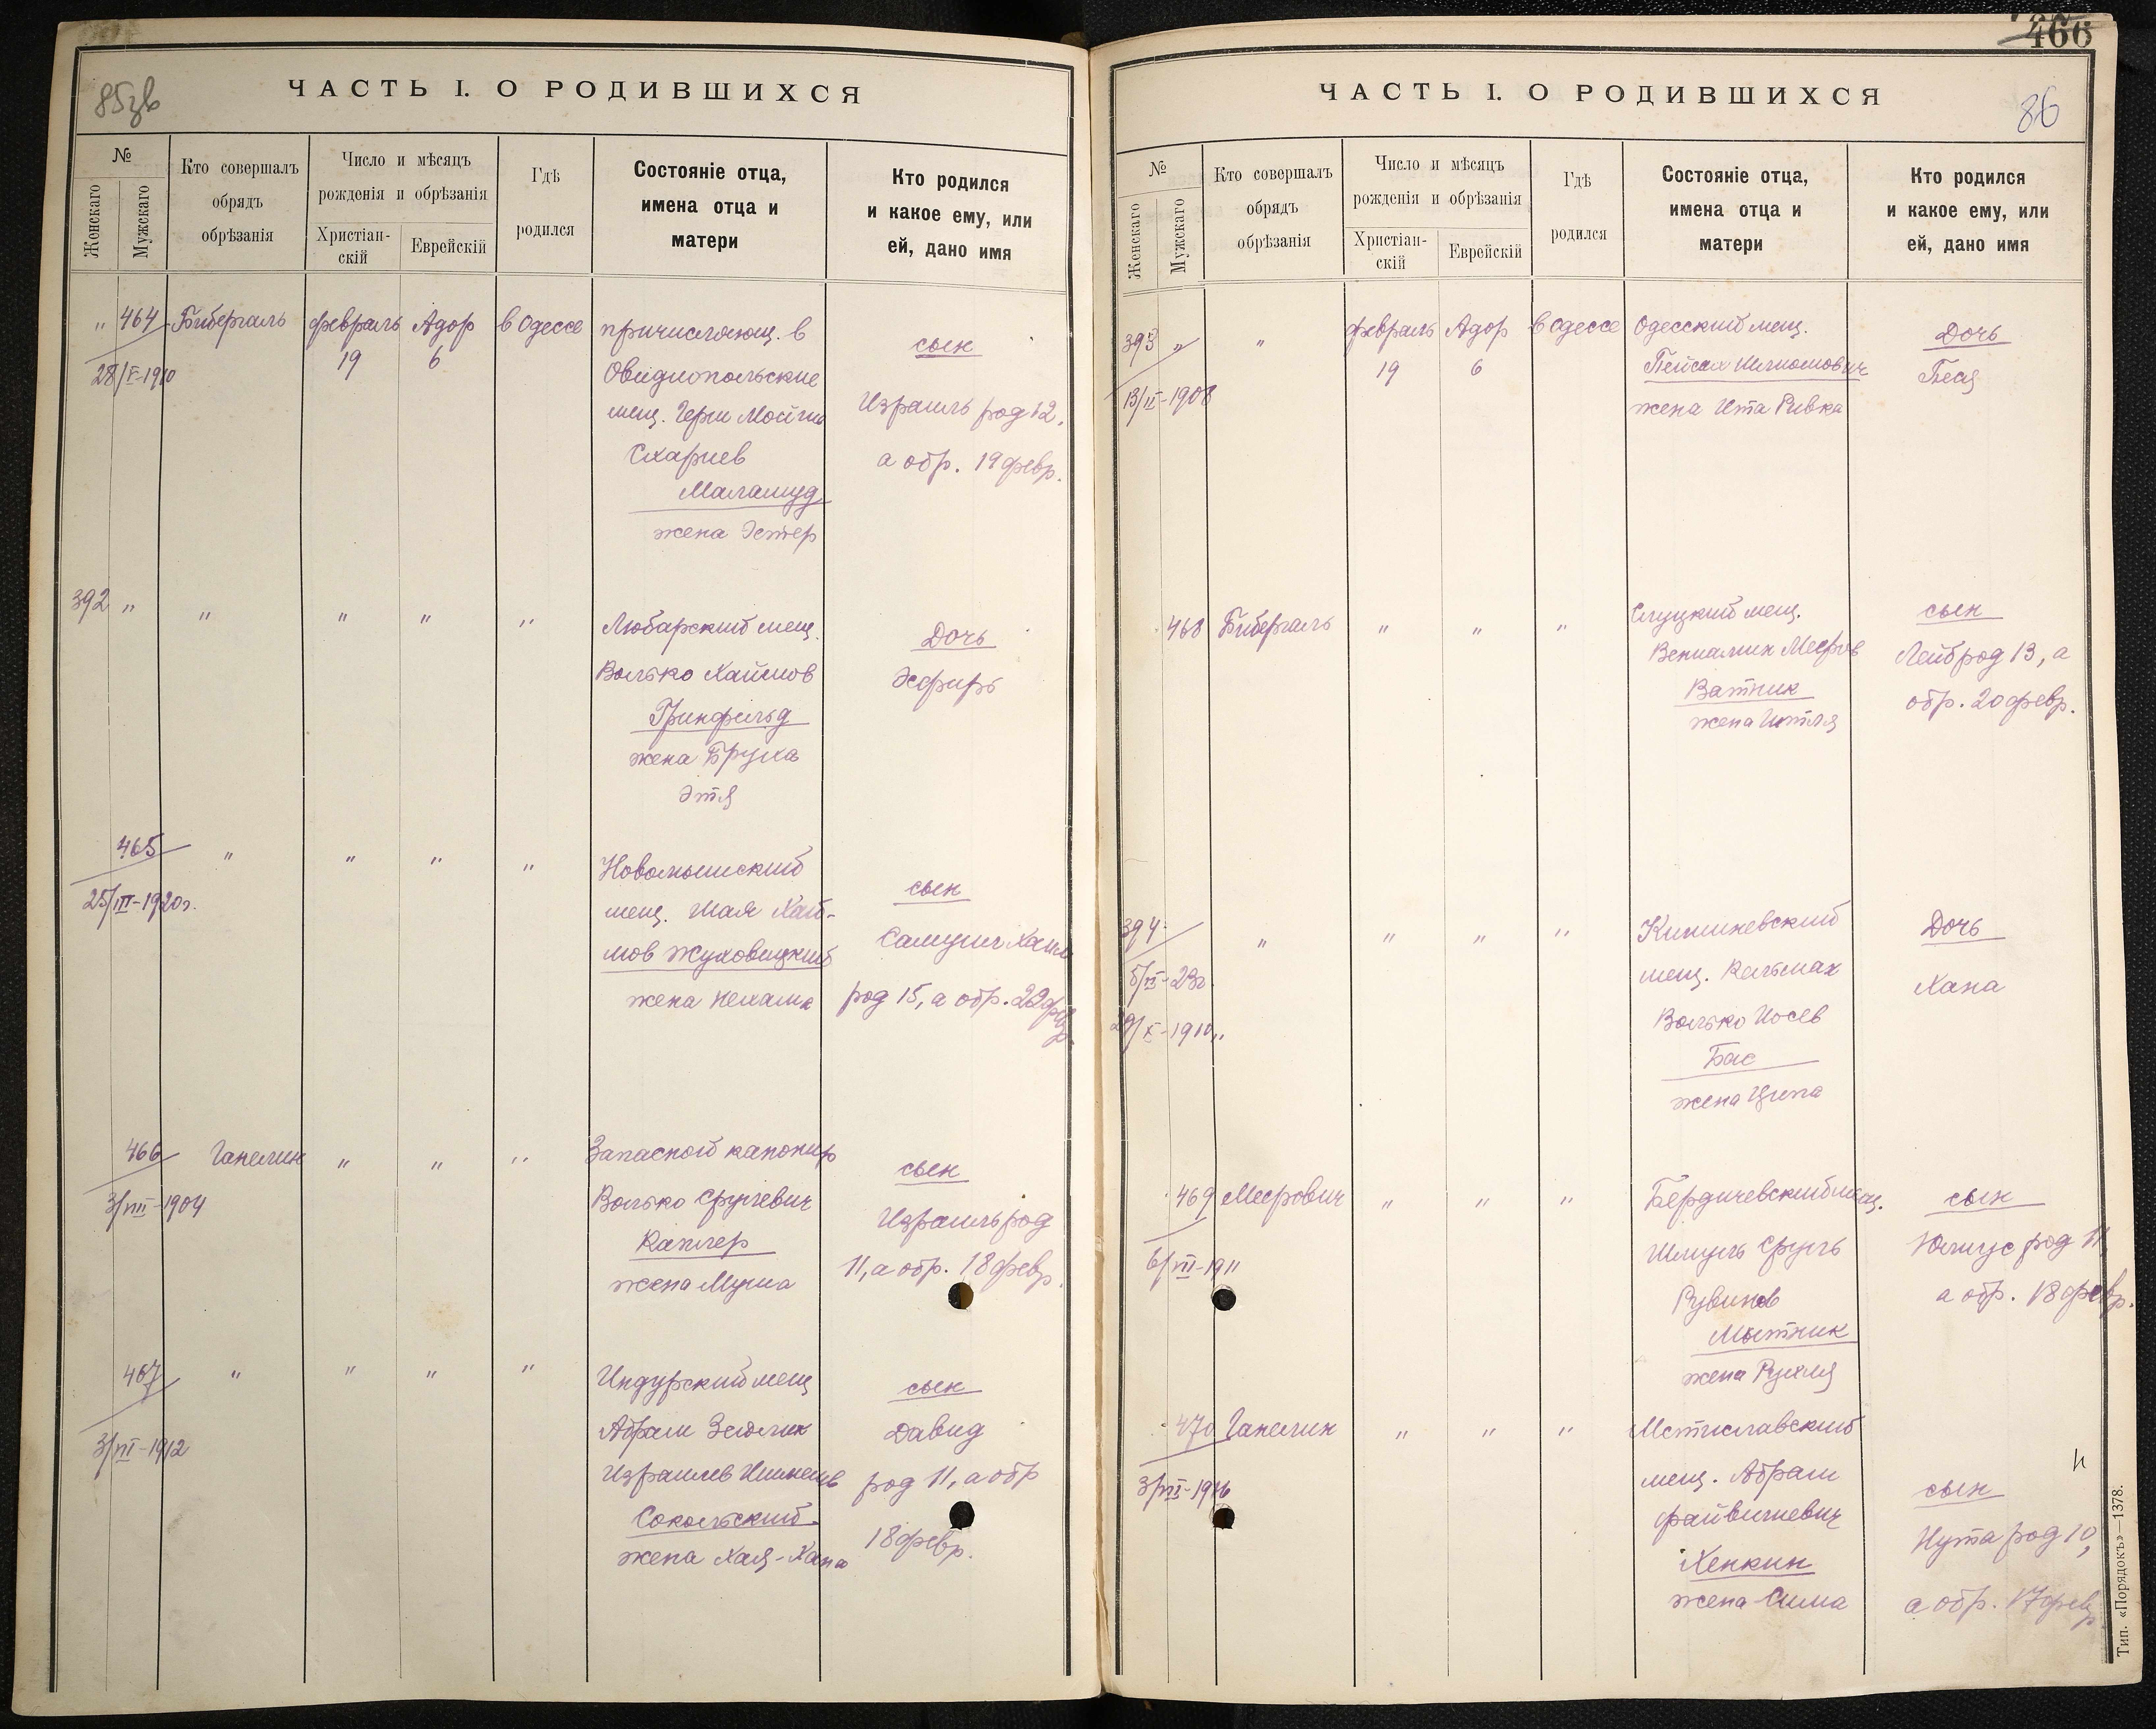 85зв
ЧАСТЬ I. О РОДИВШИХСЯ
№
Женскаго
Мужскаго
Кто совершалъ
обрядъ
обрѣзанія
Число и мѣсяцъ
рожденія и обрѣзанія
Христіан-
скій
Еврейскій
Гдѣ
родился
Состояніе отца,
имена отца и
матери
Кто родился
и какое ему, или
ей, дано имя
" 464 Бибергаль февраль Адор в Одессе
19 6
28/V-1910
причисляющ. в
Овидиопольские
мещ. Герш Мойше
Схариев
Маламуд
жена Эстер
сын
Израиль род 12,
а обр. 19 февр.
392 " " " " "
Любарский мещ.
Волько Хаимов
Гринфельд
жена Бруха
Этя
Дочь
Эсфирь
465 " " " "
25/III-1920г.
Новомышский
мещ. Шая Хаи-
мов Жуховицкий
жена Нехама
сын
Самуил Хаим
род 15, а обр. 22 февр.
466 Ганелин " " "
3/VIII-1904
Запасной канонир
Волько Срулевич
Каплер
жена Муша
сын
Израиль род
11, а обр. 18 февр.
467 " " " "
3/VI-1912
Индурский мещ
Абрам Зейлик
Израилев
Сокольский
жена Хая-Хана
сын
Давид
род 11, а обр
18 февр.
466
86
ЧАСТЬ I. О РОДИВШИХСЯ
№
Женскаго
Мужскаго
Кто совершалъ
обрядъ
обрѣзанія
Число и мѣсяцъ
рожденія и обрѣзанія
Христіан-
скій
Еврейскій
Гдѣ
родился
Состояніе отца,
имена отца и
матери
Кто родился
и какое ему, или
ей, дано имя
393 " " февраль Адор в Одессе
19 6
13/II-1908
Одесский мещ.
Пейсах
жена Ита Ривка
Дочь
Бея
468 Бибергаль " " "
Слуцкий мещ.
Вениамин Мееров
Ватник
жена Шитля
сын
Лейб род 13, а
обр. 20 февр.
394 " " " "
5/IX-23г.
29/X-1910"
Кишиневский
мещ. Кальман
Волько Иосев
Бас
жена Ципа
Дочь
Хана
469 Меерович " " "
6/VII-1911
Бердичевский мещ.
Шмуль Сруль
Рувинов
Мытник
жена Рухля
сын
Юлиус род 11,
а обр. 18 февр.
470 Ганелин " " "
3/VII-1916
Мстиславский
мещ. Абрам
Файвишевич
Хенкин
жена Сима
сын
Нута род 10,
а обр. 17 февр
Тип. «Порядокъ»—1378.